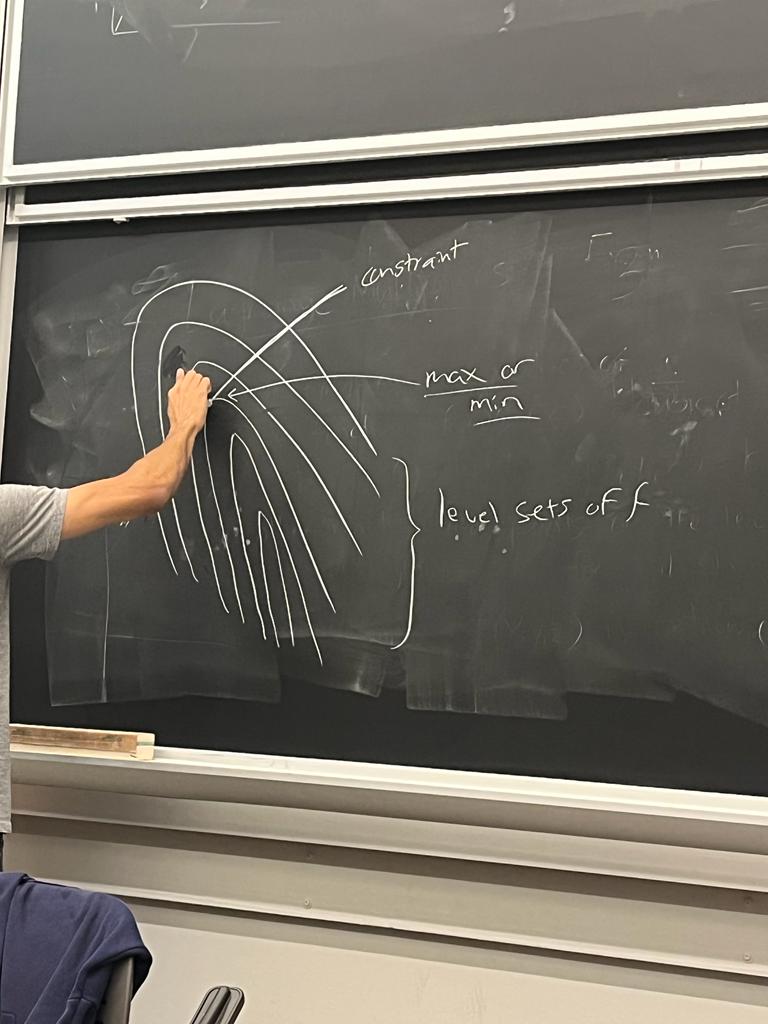 constraint
max or
min
level sets of f